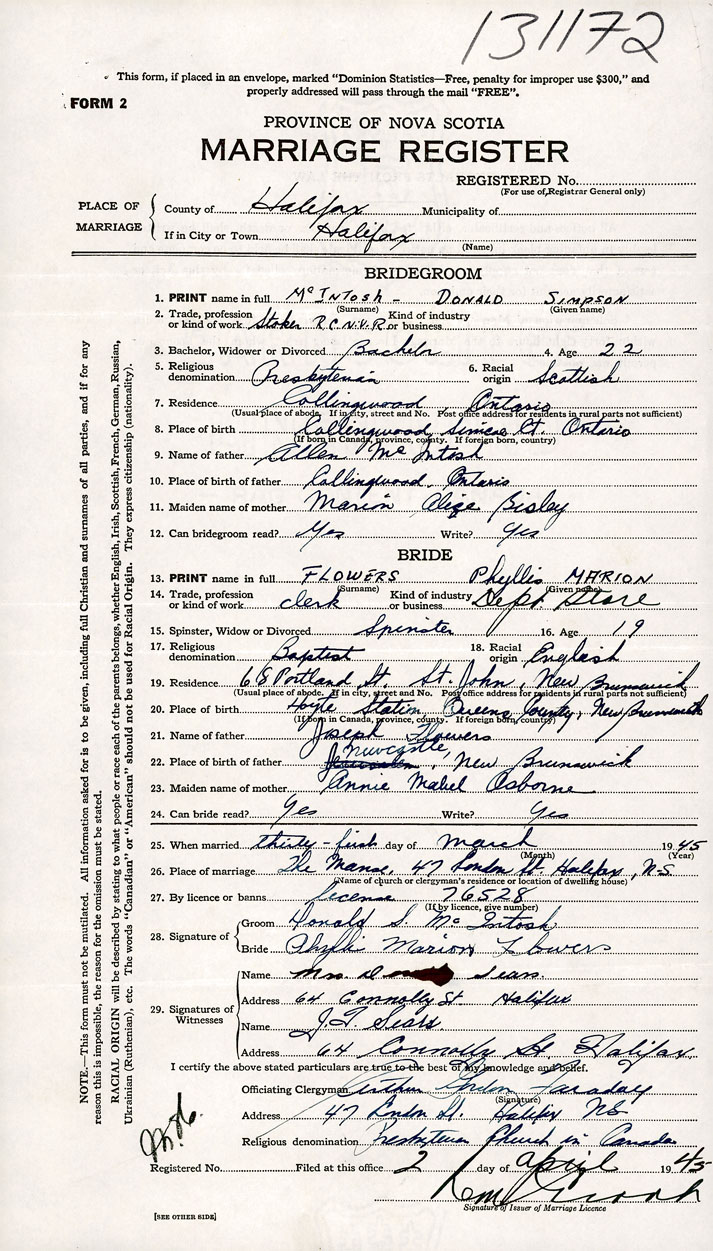 131172
This form, if placed in an envelope, marked “Dominion Statistics—Free, penalty for improper use $300,” and
properly addressed will pass through the mail “FREE”.
FORM 2
PROVINCE OF NOVA SCOTIA
MARRIAGE REGISTER
REGISTERED No.
(For use of Registrar General only)
PLACE OF MARRIAGE
County of Halifax Municipality of
If in City or Town Halifax
(Name)
BRIDEGROOM
1. PRINT name in full McINTosh - DONALD SIMPSON
(Surname) (Given name)
2. Trade, profession or kind of work Stoker R.C.N.V.R. Kind of industry or business
3. Bachelor, Widower or Divorced Bachelor 4. Age 22
5. Religious denomination Presbyterian 6. Racial origin Scottish
7. Residence Collingwood, Ontario
(Usual place of abode. If in city, street and No. Post office address for residents in rural parts not sufficient)
8. Place of birth Collingwood, Simcoe Ct. Ontario
(If born in Canada, province, county. If foreign born, country)
9. Name of father Allen McIntosh
10. Place of birth of father Collingwood, Ontario
11. Maiden name of mother Marion Bisley
12. Can bridegroom read? Yes Write? Yes
BRIDE
13. PRINT name in full FLOWERS Phyllis MARION
(Surname) (Given name)
14. Trade, profession or kind of work clerk Kind of industry or business Dept. Store
15. Spinster, Widow or Divorced Spinster 16. Age 19
17. Religious denomination Baptist 18. Racial origin English
19. Residence 68 Portland St. St. John, New Brunswick
(Usual place of abode. If in city, street and No. Post office address for residents in rural parts not sufficient)
20. Place of birth Hoyte Station, Queens County, New Brunswick
(If born in Canada, province, county. If foreign born, country)
21. Name of father Joseph Flowers
22. Place of birth of father Newcastle, New Brunswick
23. Maiden name of mother Annie Mabel Osborne
24. Can bride read? Yes Write? Yes
25. When married thirty-first day of March 1945
(Month) (Year)
26. Place of marriage The Manse, 47 London St. Halifax, N.S.
(Name of church or clergyman's residence or location of dwelling house)
27. By licence or banns license 76528
(If by licence, give number)
28. Signature of
Groom Donald S. McIntosh
Bride Phyllis Marion Flowers
29. Signatures of Witnesses
Name Mrs. D Sears.
Address 64 Connolly St Halifax
Name J.F. Sears
Address 64 Connolly St. Halifax
I certify the above stated particulars are true to the best of my knowledge and belief.
Officiating Clergyman Arthur Gordon Faraday
(Signature)
Address 47 London St. Halifax NS
Religious denomination Presbyterian Church in Canada
Registered No. Filed at this office 2 day of April 1945
Signature of Issuer of Marriage Licence
[SEE OTHER SIDE]
NOTE.—This form must not be mutilated. All information asked for is to be given, including full Christian and surnames of all parties, and if for any
reason this is impossible, the reason for the omission must be stated.
RACIAL ORIGIN will be described by stating to what people or race each of the parents belongs, whether English, Irish, Scottish, French, German, Russian,
Ukrainian (Ruthenian), etc. The words “Canadian” or “American” should not be used for Racial Origin. They express citizenship (nationality).